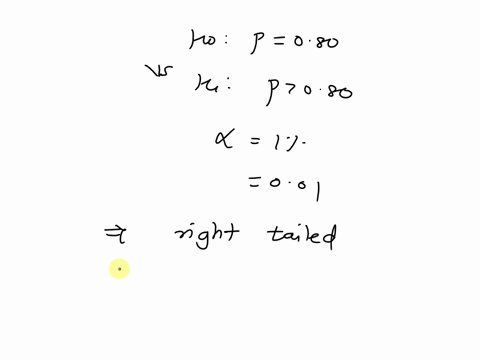 H0: p = 0.80
Vs
H1: p > 0.80
α = 1%
= 0.01
⇒ right tailed